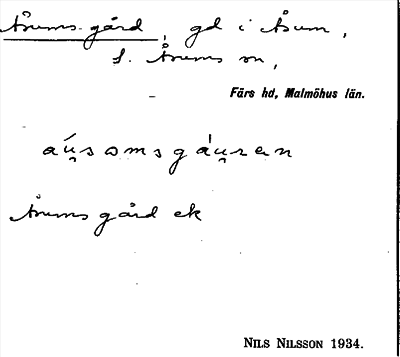 Åsums gård, gd i Åsum,
S. Åsums sn,
Färs hd, Malmöhus län.
aú̯sɷmsgáu̯ren
Åsums gård ek
NILS NILSSON 1934.